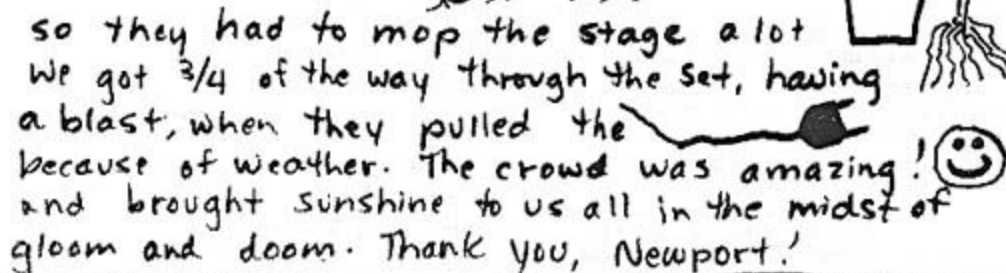 so they had to mop the stage a lot
We got 3/4 of the way through the set, having
a blast, when they pulled the
because of weather. The crowd was amazing!
and brought sunshine to us all in the midst of
gloom and doom. Thank you, Newport!